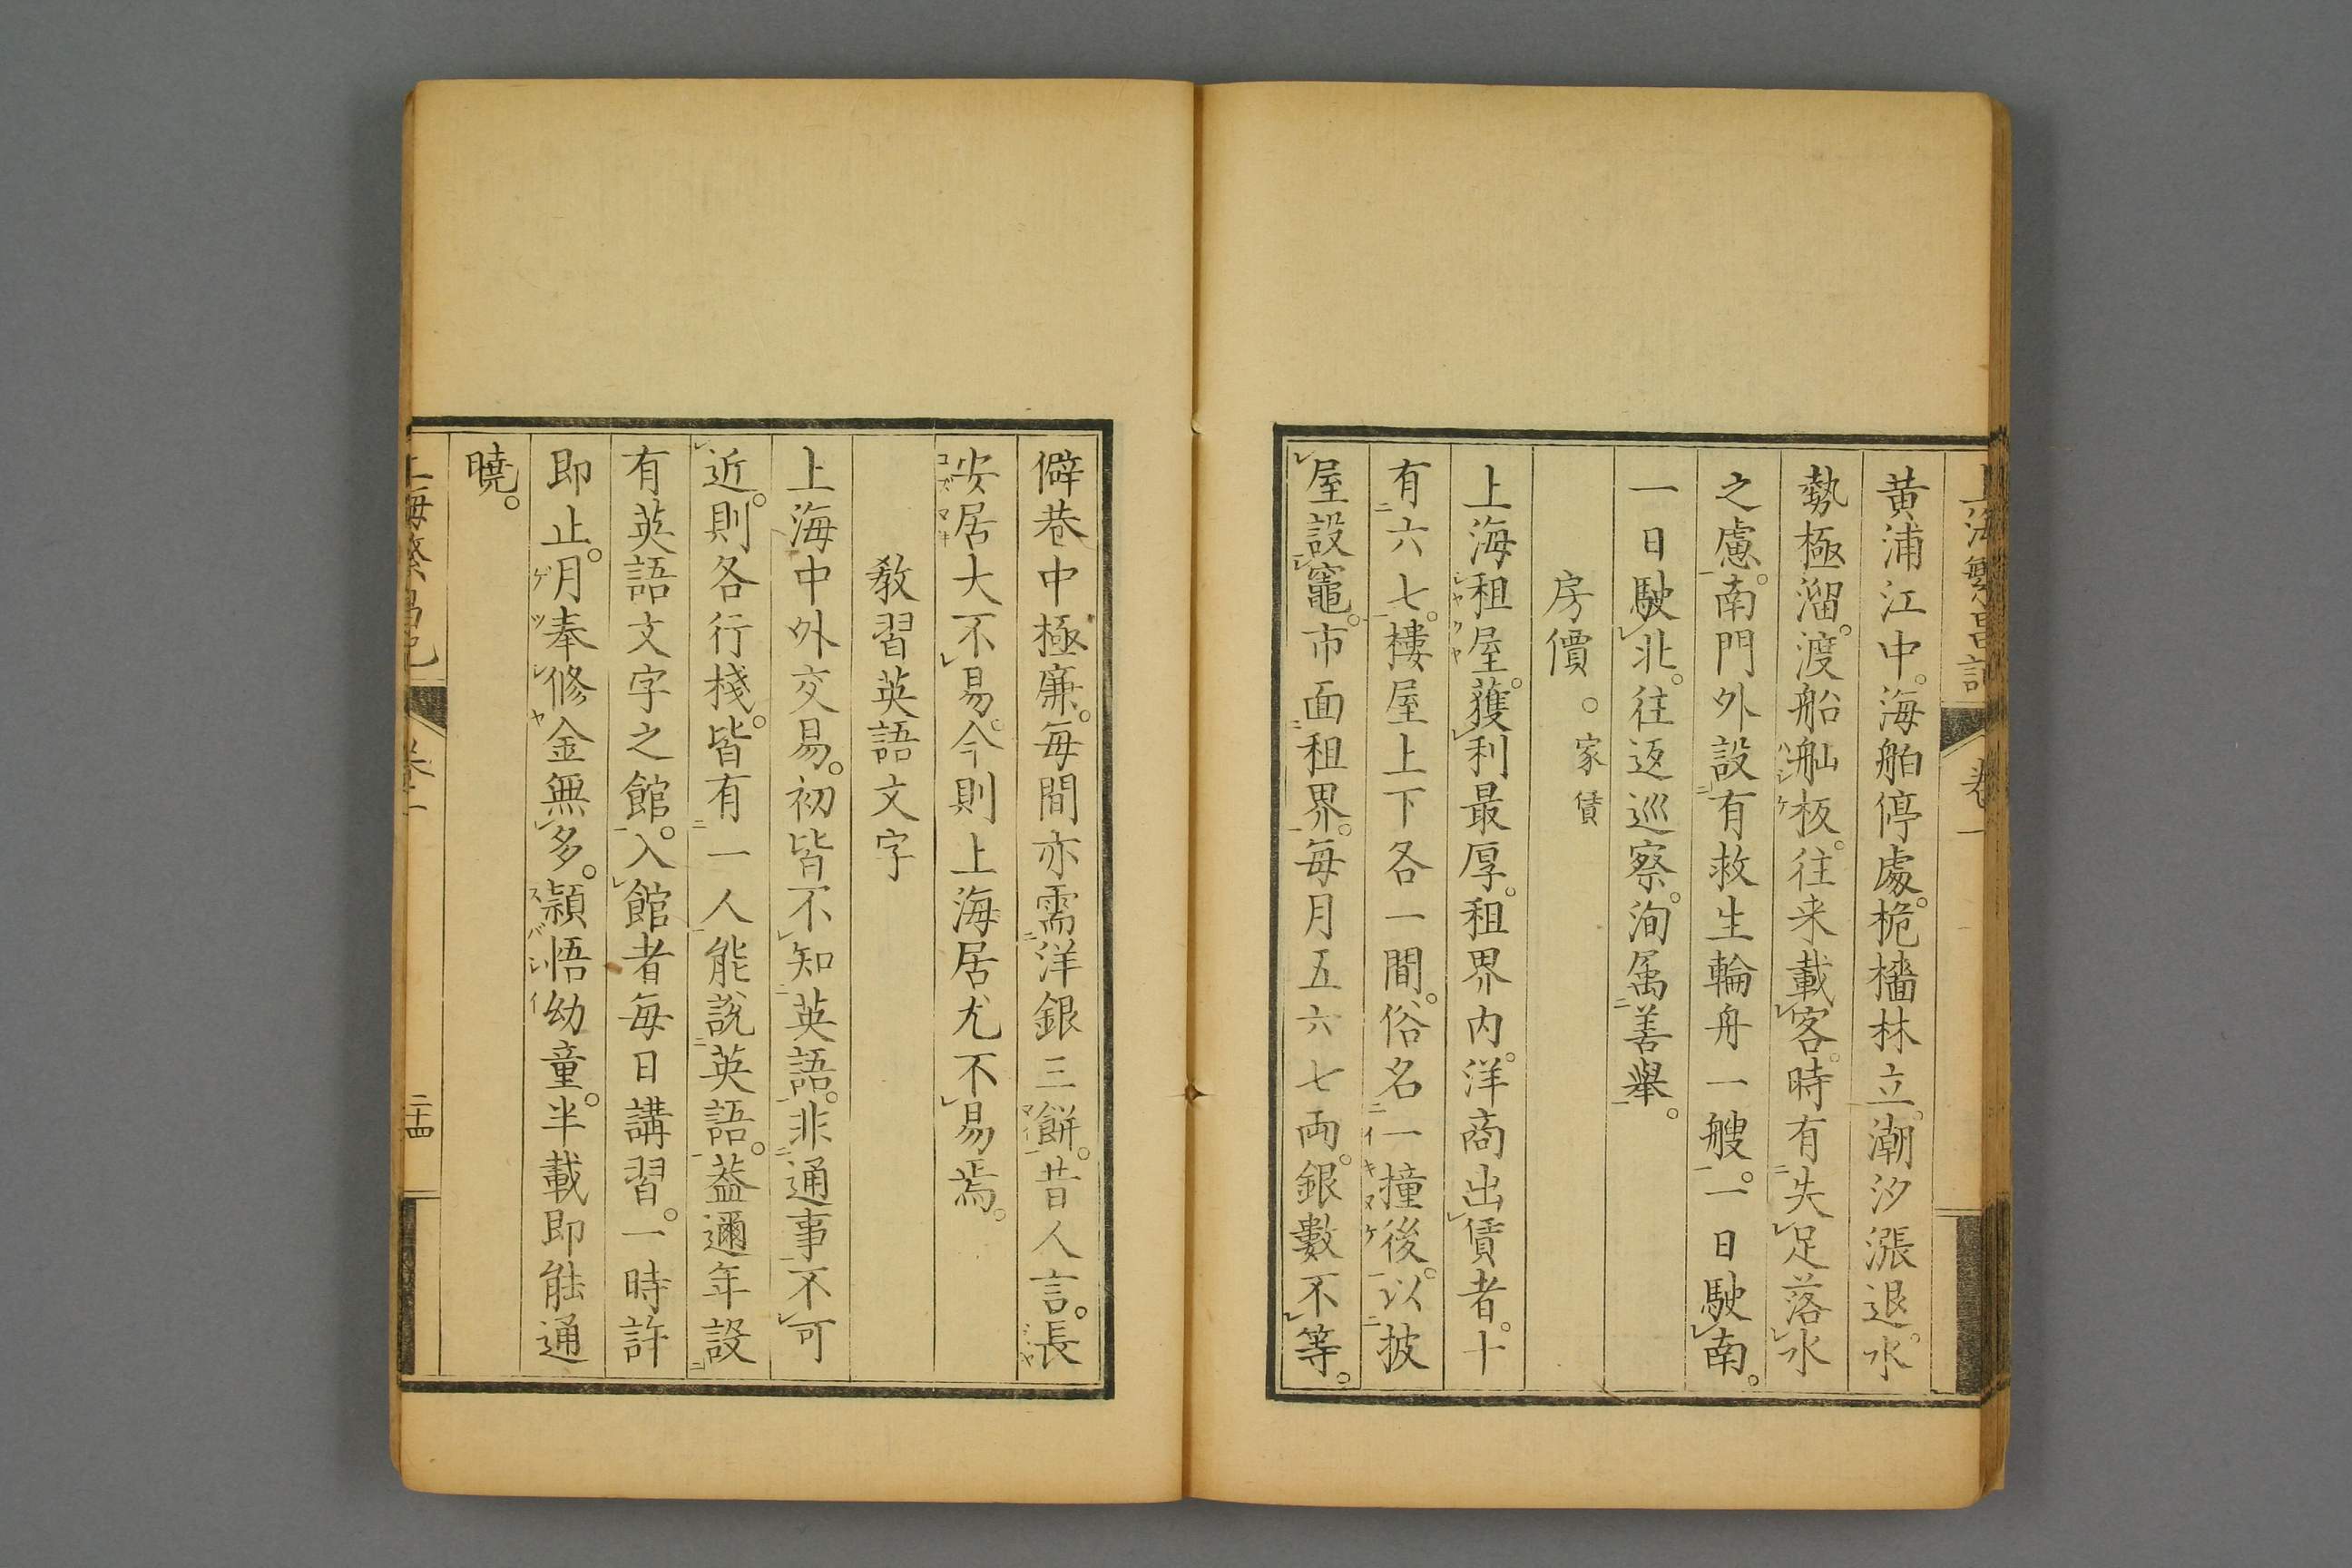 上海繁昌記 卷一
黄浦江中。海舶停處。桅檣林立。潮汐漲退。水
勢極溜。渡船舢板。往来載客。時有失足落水
之慮。南門外設有救生輪舟一艘。一日駛南。
一日駛北。往返巡察。洵属善舉。
房價。家賃
上海租屋。獲利最厚。租界内。洋商出賃者。十
有六七。樓屋上下各一間。俗名一撞後。以披
屋設竈。市面租界。毎月五六七両。銀數不等。
僻巷中極廉。毎間亦需洋銀三餅。昔人言。長
安居大不易。今則上海居尤不易焉。
教習英語文字
上海中外交易。初皆不知英語。非通事不可
近。則各行棧。皆有一人能説英語。葢邇年設
有英語文字之館。入館者毎日講習。一時許
即止。月奉修金無多。頴悟幼童。半載即能通
曉。
上海繁昌記 卷一 二十四